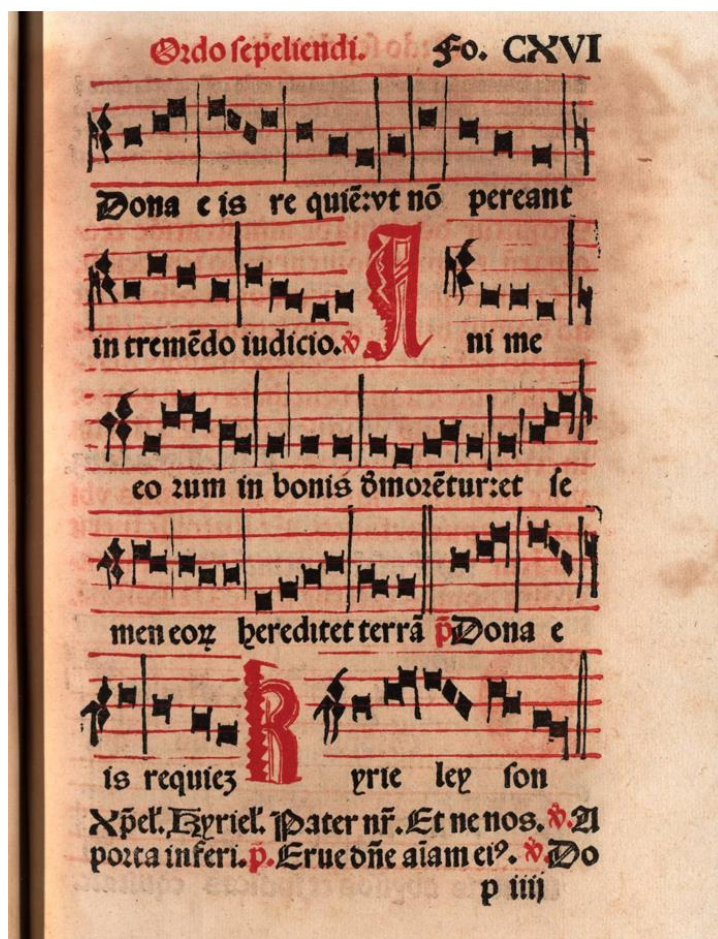 Ordo sepeliendi. Fo. CXVI
Dona e is re quiē:vt nō pereant
in tremēdo iudicio. ℣ A ni me
eo rum in bonis d̄morētur:et se
men eoꝝ hereditet terrā p̄ Dona e
is requieꝫ Kyrie ley son
Xp̄eł. Kyrieł. Pater nr̄. Et ne nos. ℣. A
porta inferi. p̄. Erue dn̄e aīam eiꝰ. ℣. Do
p iiij